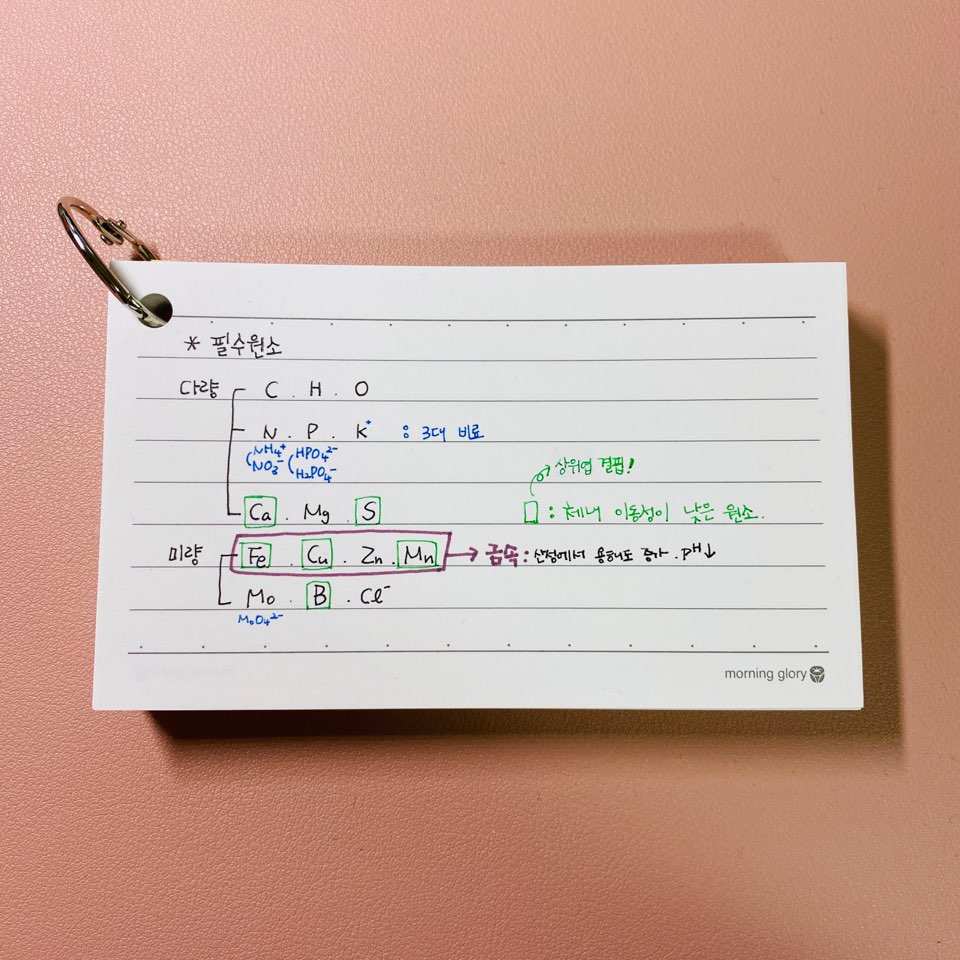 * 필수원소
다량 C . H . O
N . P . K⁺ : 3대 비료
(NH₄⁺ (HPO₄²⁻
NO₃⁻ H₂PO₄⁻
상위엽 결핍!
Ca . Mg . S : 체내 이동성이 낮은 원소.
미량 Fe . Cu . Zn . Mn → 금속 : 산성에서 용해도 증가 . pH↓
Mo . B . Cl⁻
MoO₄²⁻
morning glory